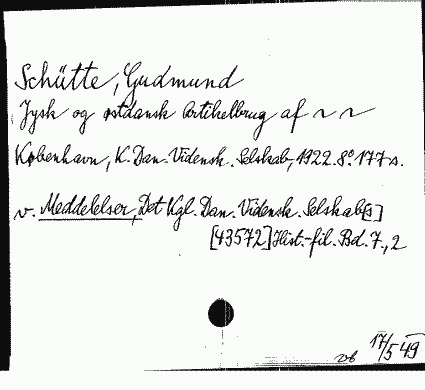 Schütte, Gudmund
Jysk og østdansk artikelbrug af ~ ~
København, K. Dan. Vidensk. Selskab, 1922. 8° 177 s.
v. Meddelelser, Det Kgl. Dan. Vidensk. Selskab[s]
[43572] Hist.-fil. Bd. 7., 2
17/5 49